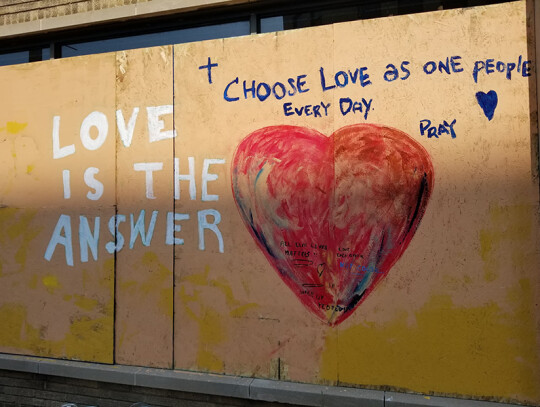 LOVE
IS THE
ANSWER
CHOOSE LOVE as ONE PEOPLE
EVERY DAY.
PRAY